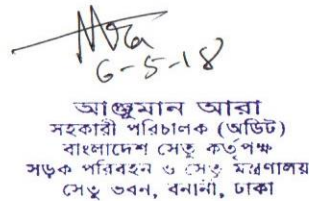 6-5-18
আঞ্জুমান আরা
সহকারী পরিচালক (অডিট)
বাংলাদেশ সেতু কর্তৃপক্ষ
সড়ক পরিবহন ও সেতু মন্ত্রণালয়
সেতু ভবন, বনানী, ঢাকা